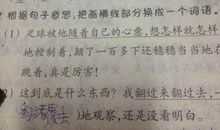 根据句子意思,把画横线部分换成一个词语。
(1) 足球被他随着自己的心意,想怎样就怎样
地控制着,颠了一百多下还稳稳当当地在
跳着,真是厉害!
(2) 这到底是什么东西?我翻过来翻过去,
翻来覆去 )地观察,还是没看明白。